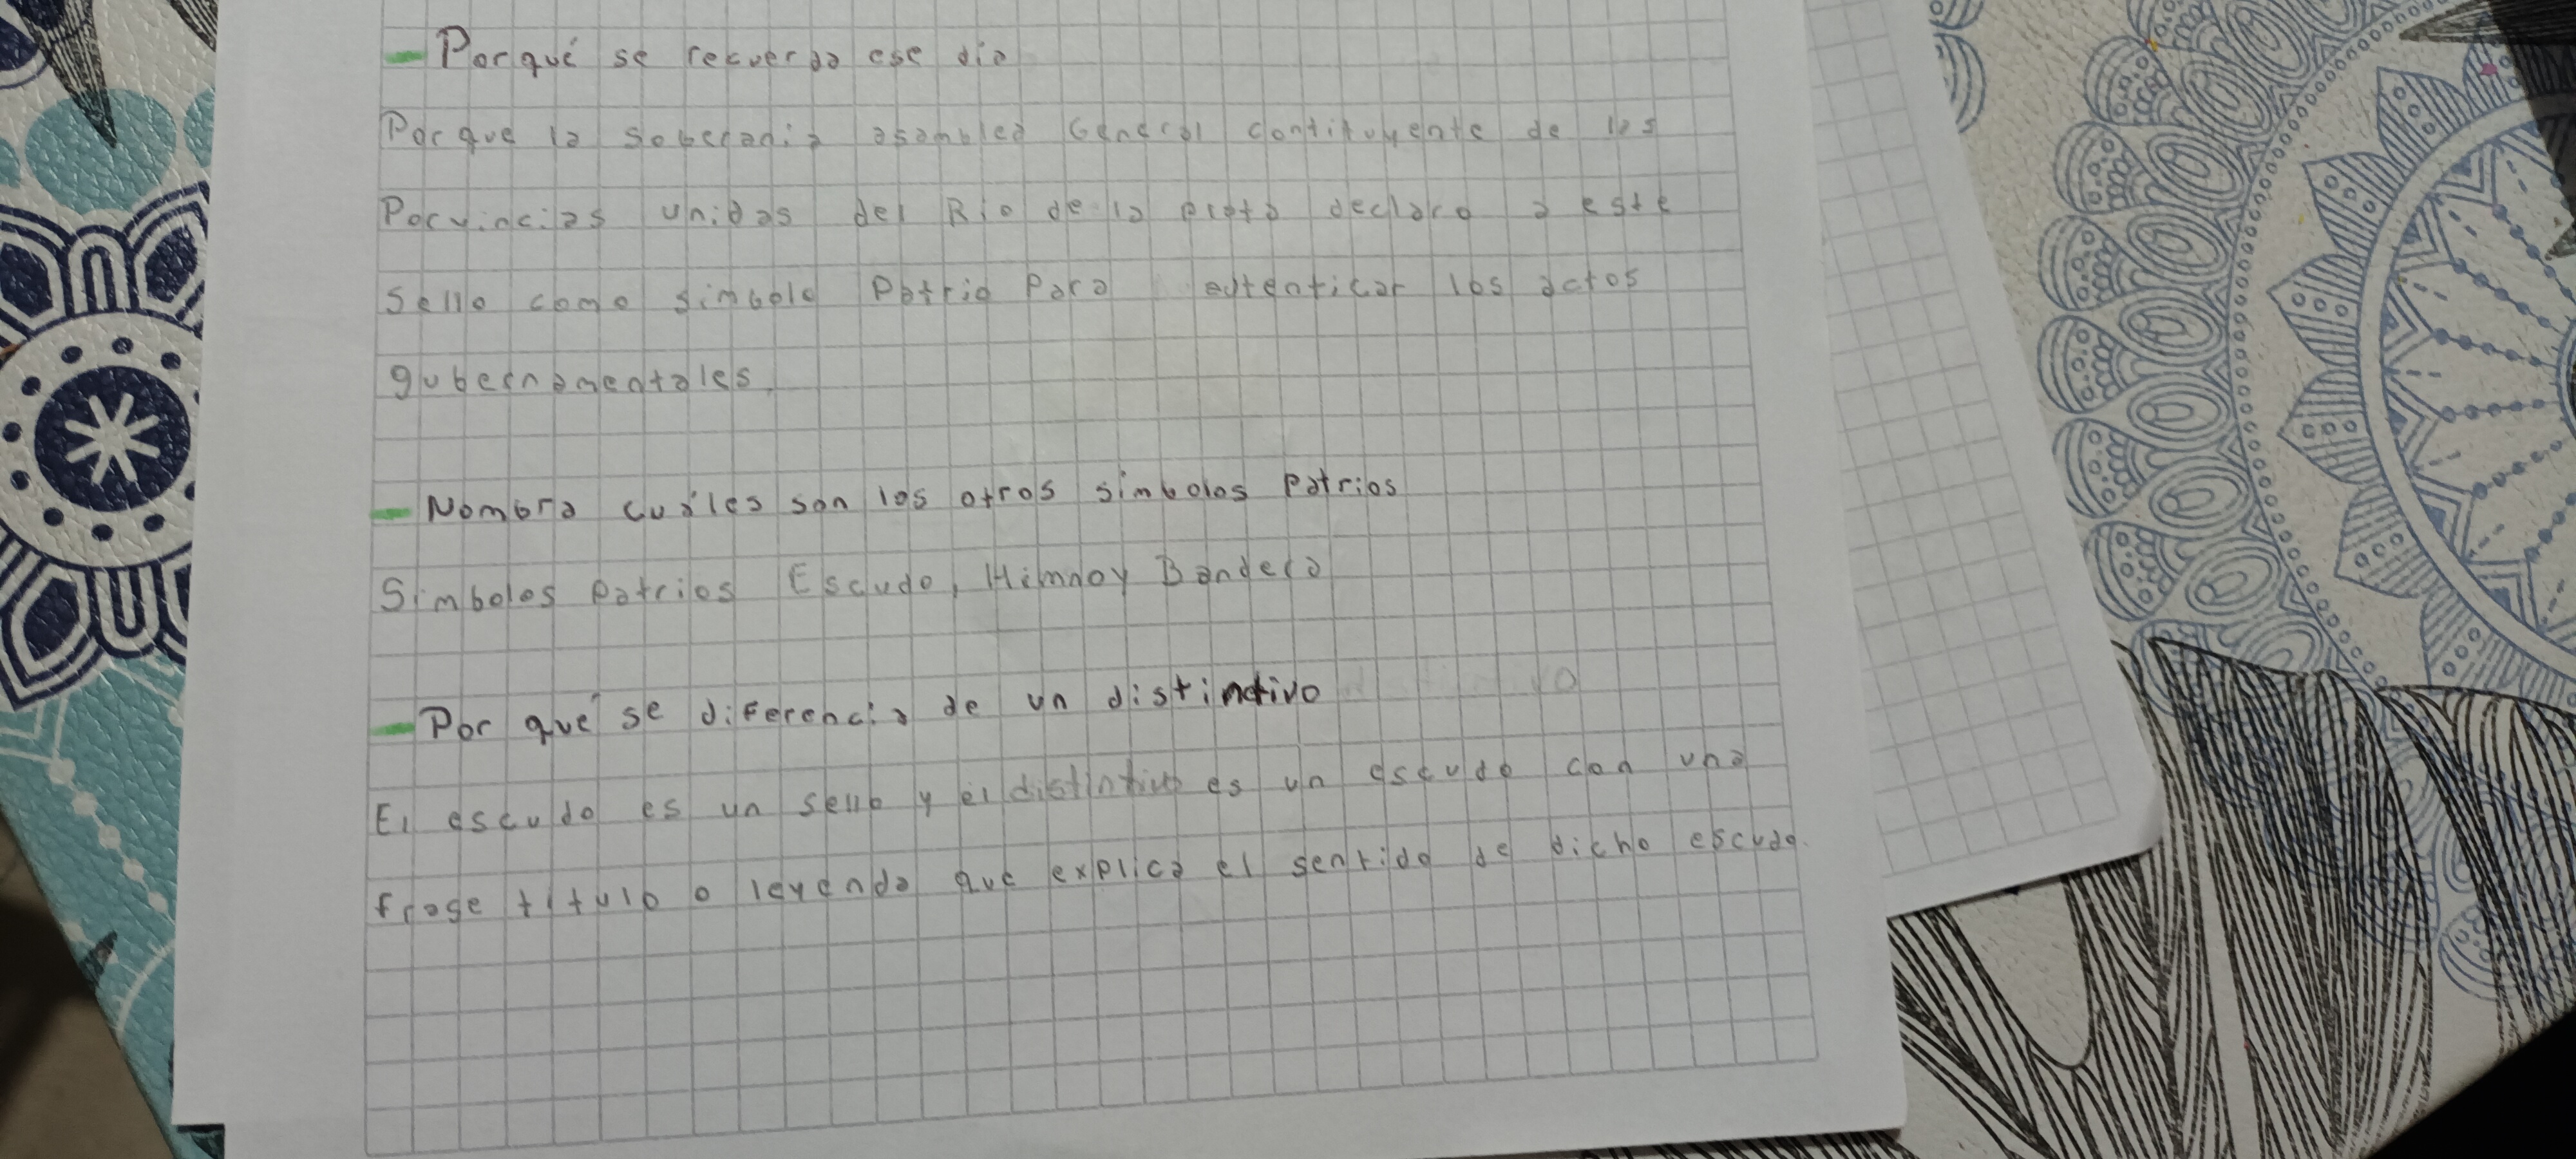 - Porqué se recuerda ese dia
Porque la soberania asamblea General contituyente de las
Porvincias unidas del Rio de la plata declaro a este
sello como simbolo Patrio Para autenticar los actos
gubernamentales.
- Nombra cuáles son los otros simbolos Patrios
Simbolos Patrios Escudo, Himno y Bandera
- Por qué se diferencia de un distintivo
El escudo es un sello y el distintivo es un escudo con una
frase titulo o leyenda que explica el sentido de dicho escudo.